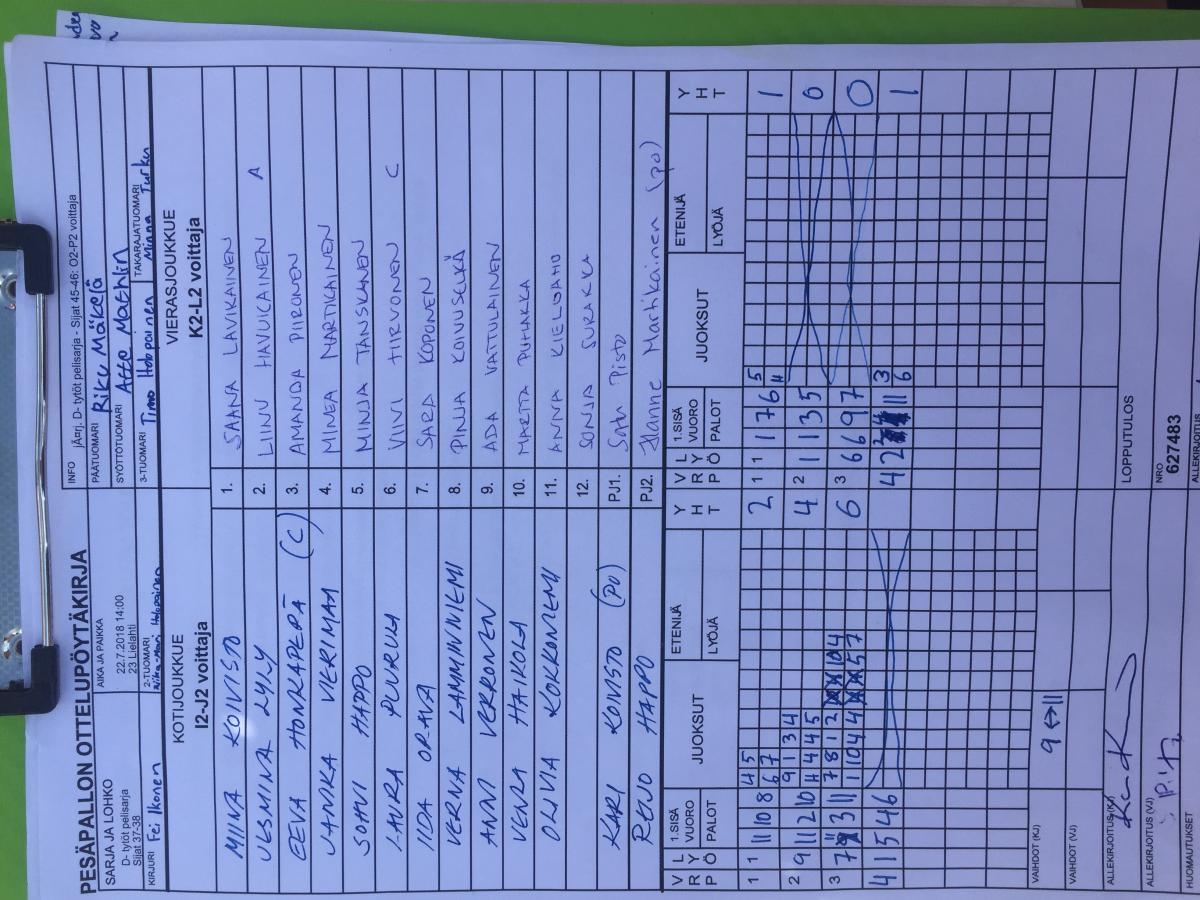 PESÄPALLON OTTELUPÖYTÄKIRJA
SARJA JA LOHKO
D- tytöt pelisarja
Sijat 37-38
AIKA JA PAIKKA
22.7.2018 14:00
23 Lielahti
INFO jÄ¤rj. D- tytöt pelisarja - Sijat 45-46: O2-P2 voittaja
PÄÄTUOMARI Riku Mäkelä
SYÖTTÖTUOMARI Atte Maehlin
KIRJURI Fei Ikonen
2-TUOMARI
3-TUOMARI Timo Holopainen
TAKARAJATUOMARI Minna Turku
KOTIJOUKKUE
I2-J2 voittaja
VIERASJOUKKUE
K2-L2 voittaja
MIINA KOIVISTO 1. SAANA LAVIKAINEN
JESMINA LYLY 2. LIINU HAVUKAINEN A
EEVA HONKAPERÄ (C) 3. AMANDA PIIRONEN
JANIKA VIERIMAA 4. MINEA MARTIKAINEN
SOHVI HAPPO 5. MINJA TANSKANEN
LAURA PLURULA 6. VIIVI HIRVONEN C
IIDA ORAVA 7. SARA KOPONEN
VERNA LAMMINNIEMI 8. PINJA KOIVUSELKÄ
ANNI VERKONEN 9. ADA VATTULAINEN
VENLA HAIKOLA 10. MARTTA PUHAKKA
OLIVIA KOKKONIEMI 11. ANNA KIELOAHO
12. SONJA SURAKKA
KARI KOIVISTO (PO) PJ1. Satu Pisto
REIJO HAPPO PJ2. Hanne Martikainen (po)
V R P L Y Ö 1.SISÄ VUORO PALOT JUOKSUT ETENIJÄ LYÖJÄ Y H T V R P L Y Ö 1.SISÄ VUORO PALOT JUOKSUT ETENIJÄ LYÖJÄ Y H T
1 1 11 10 8 4 5 2 1 1 1 7 6 5 1
6 7 11
2 9 11 2 10 9 1 3 4 4 2 1 1 3 5 0
11 4 4 5
3 7 3 11 7 8 1 2 10 4 6 3 6 6 9 7 0
1 10 4 4 5 7
4 1 5 4 6 4 2 11 3 1
6
VAIHDOT (KJ) 9 ↔ 11
VAIHDOT (VJ)
ALLEKIRJOITUS (KJ)
LOPPUTULOS
ALLEKIRJOITUS (VJ)
NRO
627483
HUOMAUTUKSET